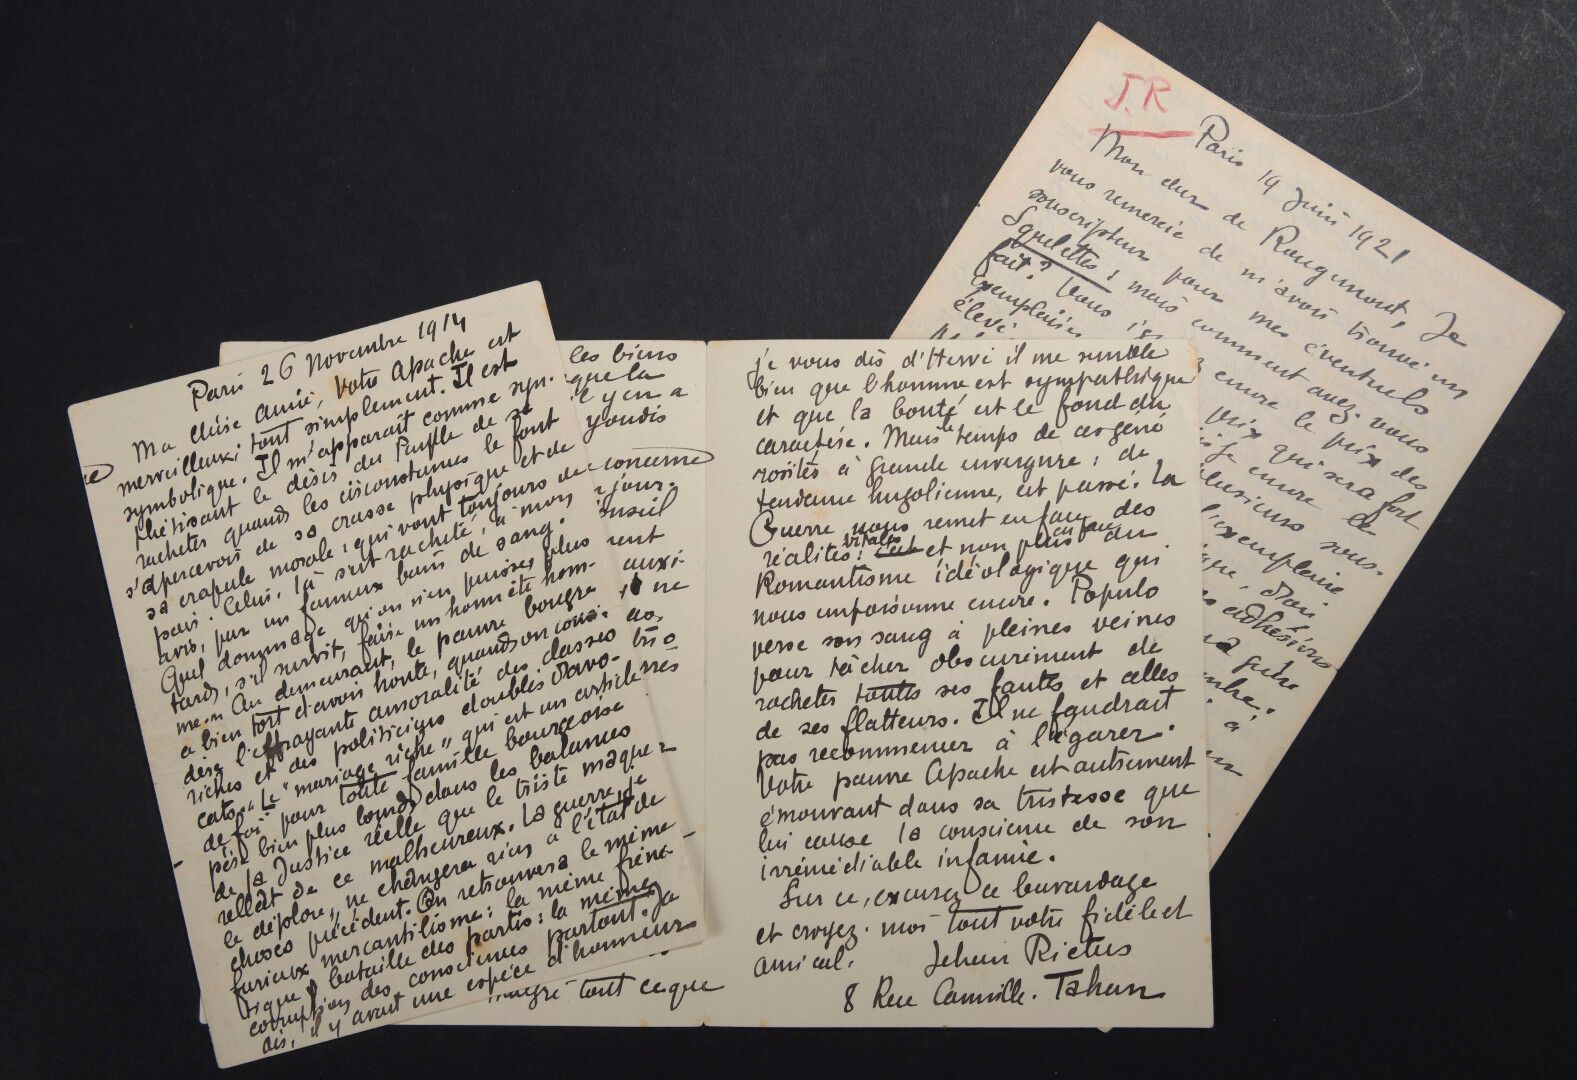 Paris 26 Novembre 1914
Ma chère amie, votre Apache est
merveilleux, tout simplement. Il est
symbolique. Il m'apparaît comme syn-
thétisant le désir du Peuple de se
racheter quand les circonstances le font
s'apercevoir de sa crasse physique et de
sa crapule morale; qui vont toujours de
pair. Celui-là s'est racheté, à mon
avis, par un fameux bain de sang.
Quel dommage qu'on n'en puisse, plus
tard, s'il survit, faire un honnête hom-
me." Au demeurant, le pauvre bougre
a bien tort d'avoir honte, quand on consi-
dère l'effrayante amoralité des classes
riches et des politiciens doublés d'avo-
cats. "Le "mariage riche" qui est un article
de foi pour toute famille bourgeoise
pèse bien plus lourd dans les balances
de la Justice réelle que le triste maque-
rellat de ce malheureux. La guerre, je
le déplore, ne changera rien à l'état de
choses précédent. On retrouvera le même
furieux mercantilisme; la même fréné-
tique bataille des partis; la même
corruption des consciences partout. Ja-
dis, il y avait une espèce d'honneur
les biens
que la
il y en a
concerne
jour.
rent
auxi-
ne
malgré tout ce que
je vous dis d'Hervé il me semble
bien que l'homme est sympathique
et que la bonté est le fond du
caractère. Mais le temps de ces géné
rosités à grande envergure; de
tendance hugolienne, est passé. La
Guerre nous remet en face des
réalités vitales; et non plus en face du
Romantisme idéologique qui
nous empoisonne encore. Populo
verse son sang à pleines veines
pour tâcher obscurément de
racheter toutes ses fautes et celles
de ses flatteurs. Il ne faudrait
pas recommencer à l'égarer.
Votre pauvre Apache est autrement
émouvant dans sa tristesse que
lui cause la conscience de son
irrémédiable infamie.
Sur ce, excusez ce bavardage
et croyez-moi tout votre fidèle et
amical.
Jehan Rictus
8 Rue Camille-Tahan
J.R
Paris 19 Juin 1921
Mon cher de Rougemont, Je
vous remercie de m'avoir trouvé un
souscripteur pour mes éventuels
Squelettes; mais comment avez-vous
fait? Vous encore le prix des
exemplaires prix qui sera fort
élevé encore le
plusieurs sous-
l'exemplaire
adhésions